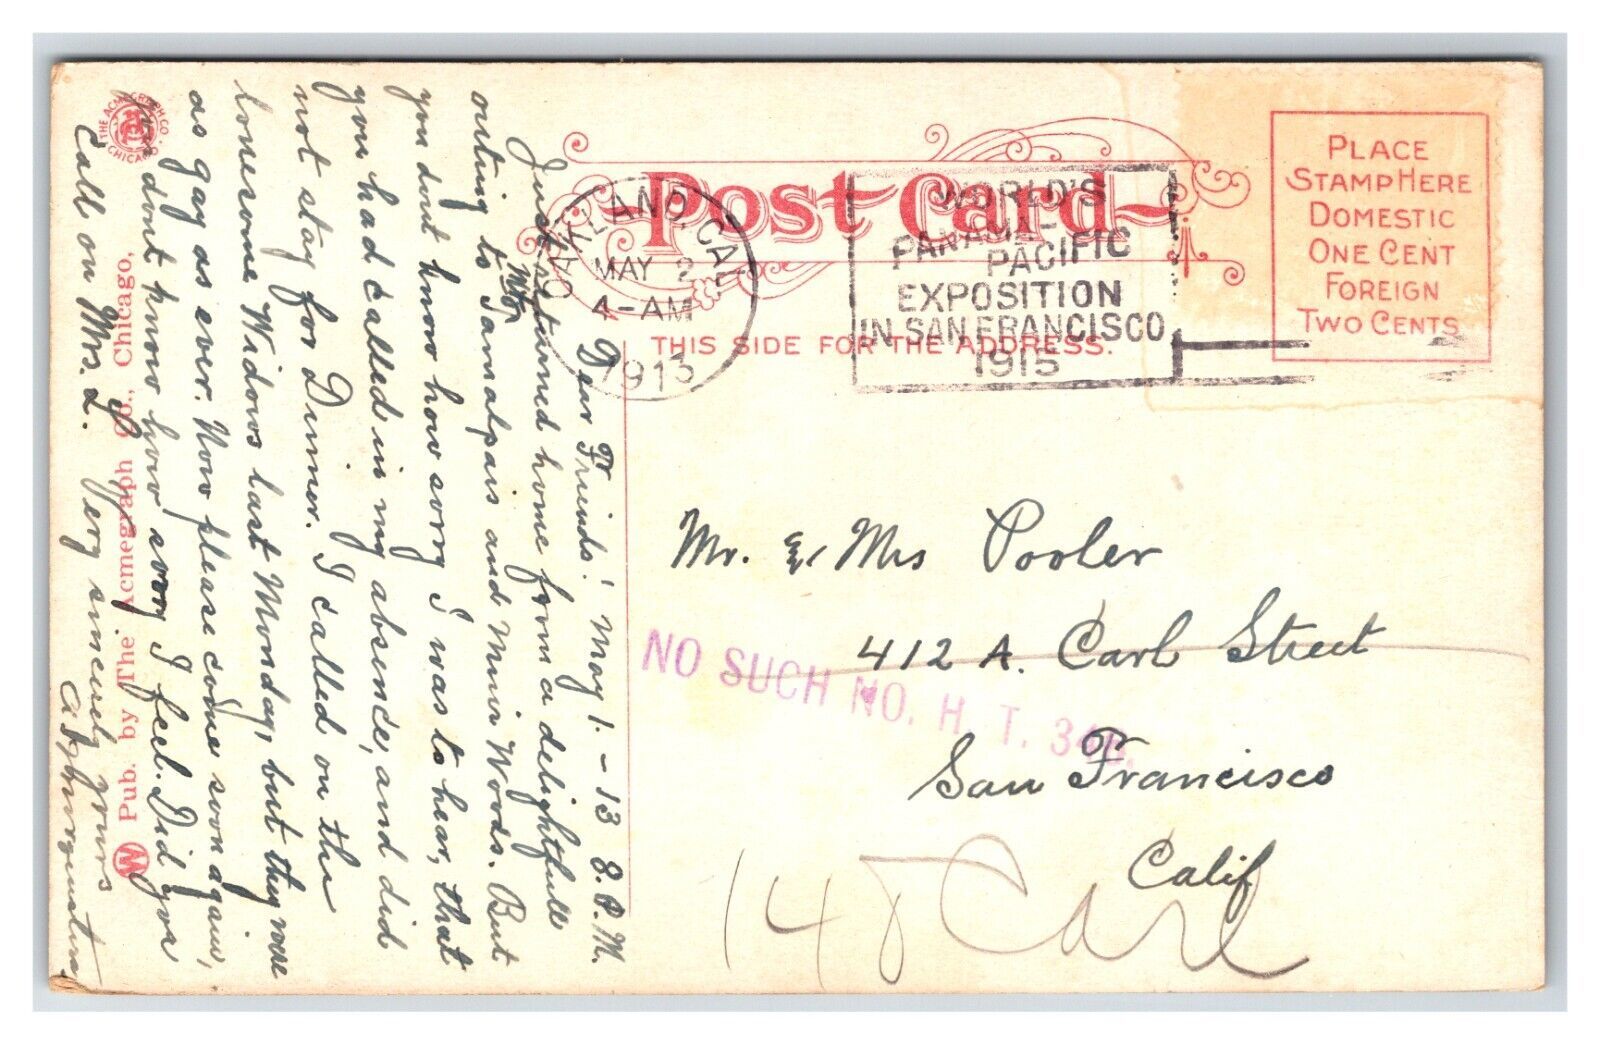 Dear Friends! May 1. - 13 8. P.M.
Just returned home from a delightfull
outing to Mt. Tamalpais and Muir Woods. But
you dont know how sorry I was to hear, that
you had called in my absence, and did
not stay for Dinner. I called on the
lonesome Widows last Monday, but they were
as gay as ever. Now please come soon again,
you dont know how sorry I feel. Did you
call on Mrs. L. Very sincerely yours
THE ACMEGRAPH CO.
CHICAGO
W Pub. by The Acmegraph Co., Chicago,
Post Card
THIS SIDE FOR THE ADDRESS.
OAKLAND, CAL.
MAY 2
4-AM
1913
WORLD'S
PANAMA-
PACIFIC
EXPOSITION
IN SAN FRANCISCO
1915
PLACE
STAMP HERE
DOMESTIC
ONE CENT
FOREIGN
TWO CENTS
Mr. & Mrs Pooler
412 A. Carl Street
San Francisco
Calif
NO SUCH NO. H. T. 346.
Carl